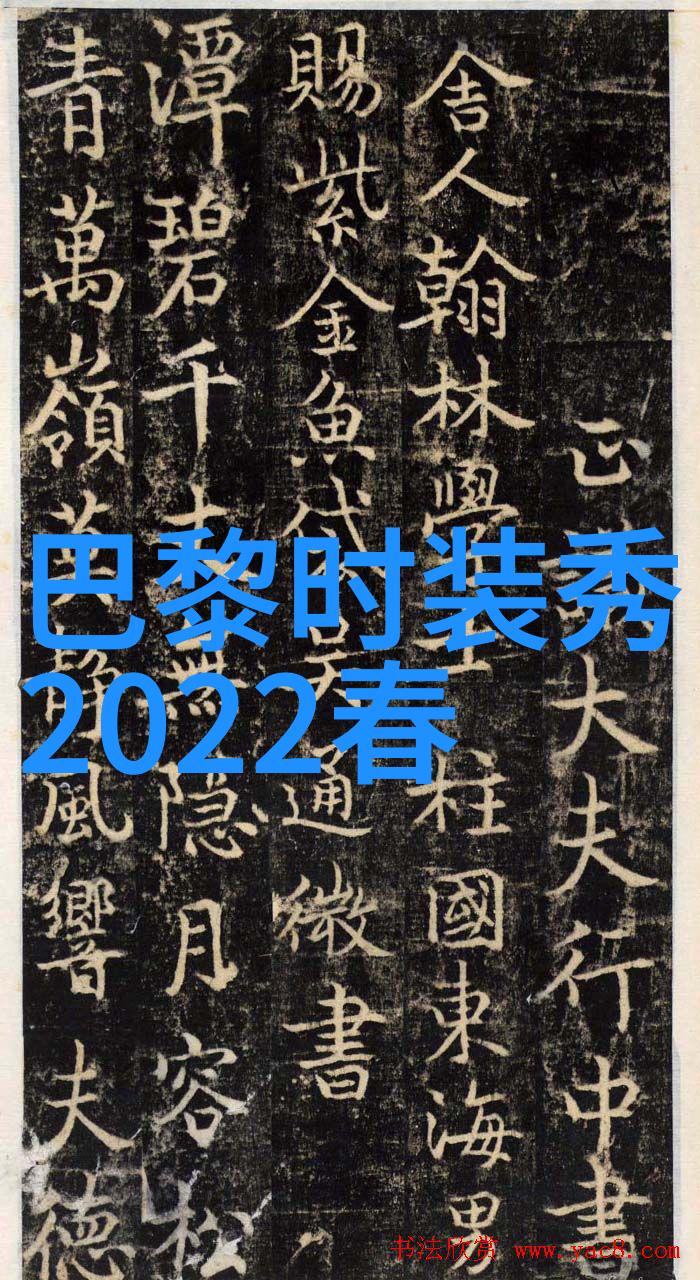 正議大夫行中書
舍人翰林學士柱國東海男
賜紫金魚袋吳通微書
潭碧千無隱月容松
青萬嶺静風響夫德
巴黎时装秀
2022春
书法欣赏 www.yac8.com